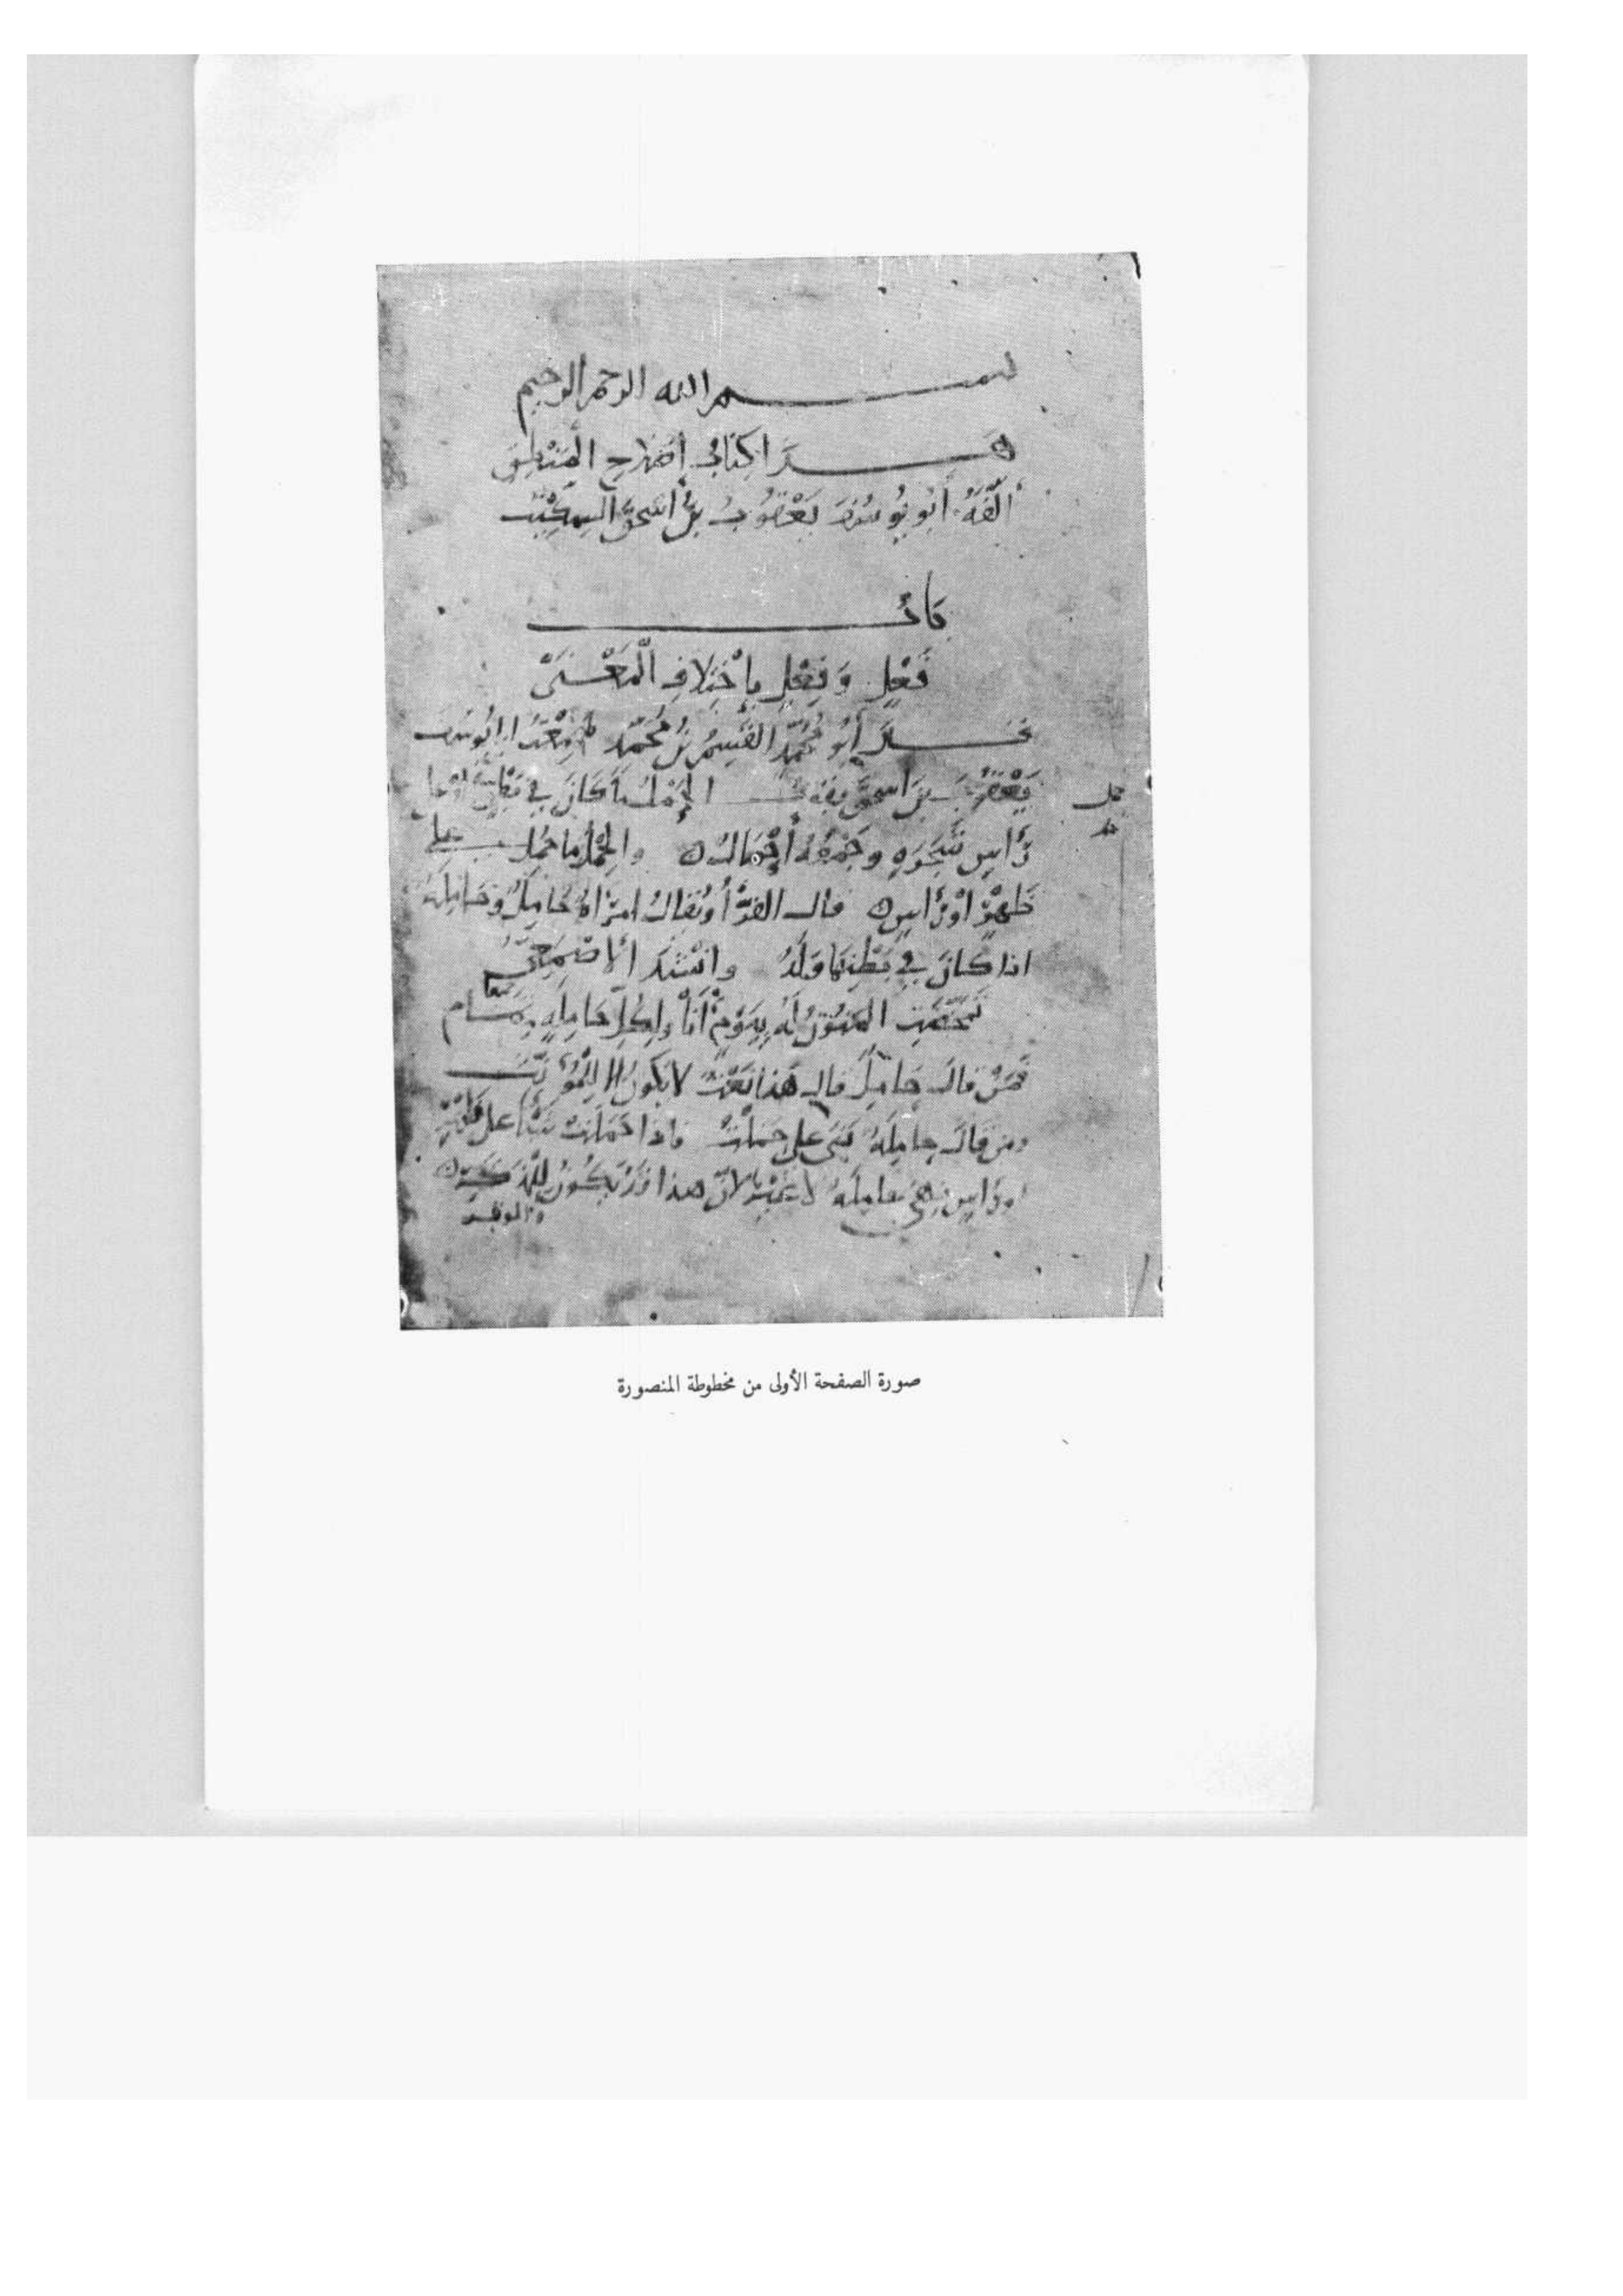 بسم الله الرحمن الرحيم
هذا كتاب إصْلاحِ المَنْطِقِ
ألَّفَهُ أبُو يُوسُفَ يَعْقُوبُ بنُ اسحقَ السِّكِّيتُ
بَابُ
فَعْلٍ وَفِعْلٍ بِاخْتِلافِ الْمَعْنَى
قال أبُو مُحَمَّدٍ القسِمُ بنُ مُحَمَّد سمِعْتُ ابا يُوسُفَ
يَعْقُوبَ بنَ اسحقَ يقول الحَمْلُ مَا كَانَ في بَطْنٍ أوْ على
حمل
رَأسِ شَجَرَةٍ وجَمْعُهُ أحْمَالٌ والحِمْلُ ما حُمِلَ على
ظَهْرٍ أوْ رَأسٍ قال الفَرَّاءُ ويُقَالُ امرَأةٌ حَامِلٌ وحَامِلَةٌ
اذا كانَ في بَطْنِهَا وَلَدٌ وانشَدَ الأصْمَعِيُّ
تَمَخَّضَتِ المَنُونُ لَهُ بِيَوْمٍ أنَى ولِكُلِّ حَامِلَةٍ تِمَام
معا
فَمَنْ قالَ حَامِلٌ قال هذا نَعْتٌ لا يكونُ إلا لِلْمُؤنَّثِ
ومن قَالَ حامِلَةٌ بَنَى على حَمَلَتْ فاذا حَمَلَتْ شَيْئًا على ظَهْرٍ
او رَأسٍ فهي حامِلَةٌ لا غَيْرُ لأنَّ هذا قَدْ يَكُونُ لِلْمُذَكَّرِ
والمونث
صورة الصفحة الأولى من مخطوطة المنصورة